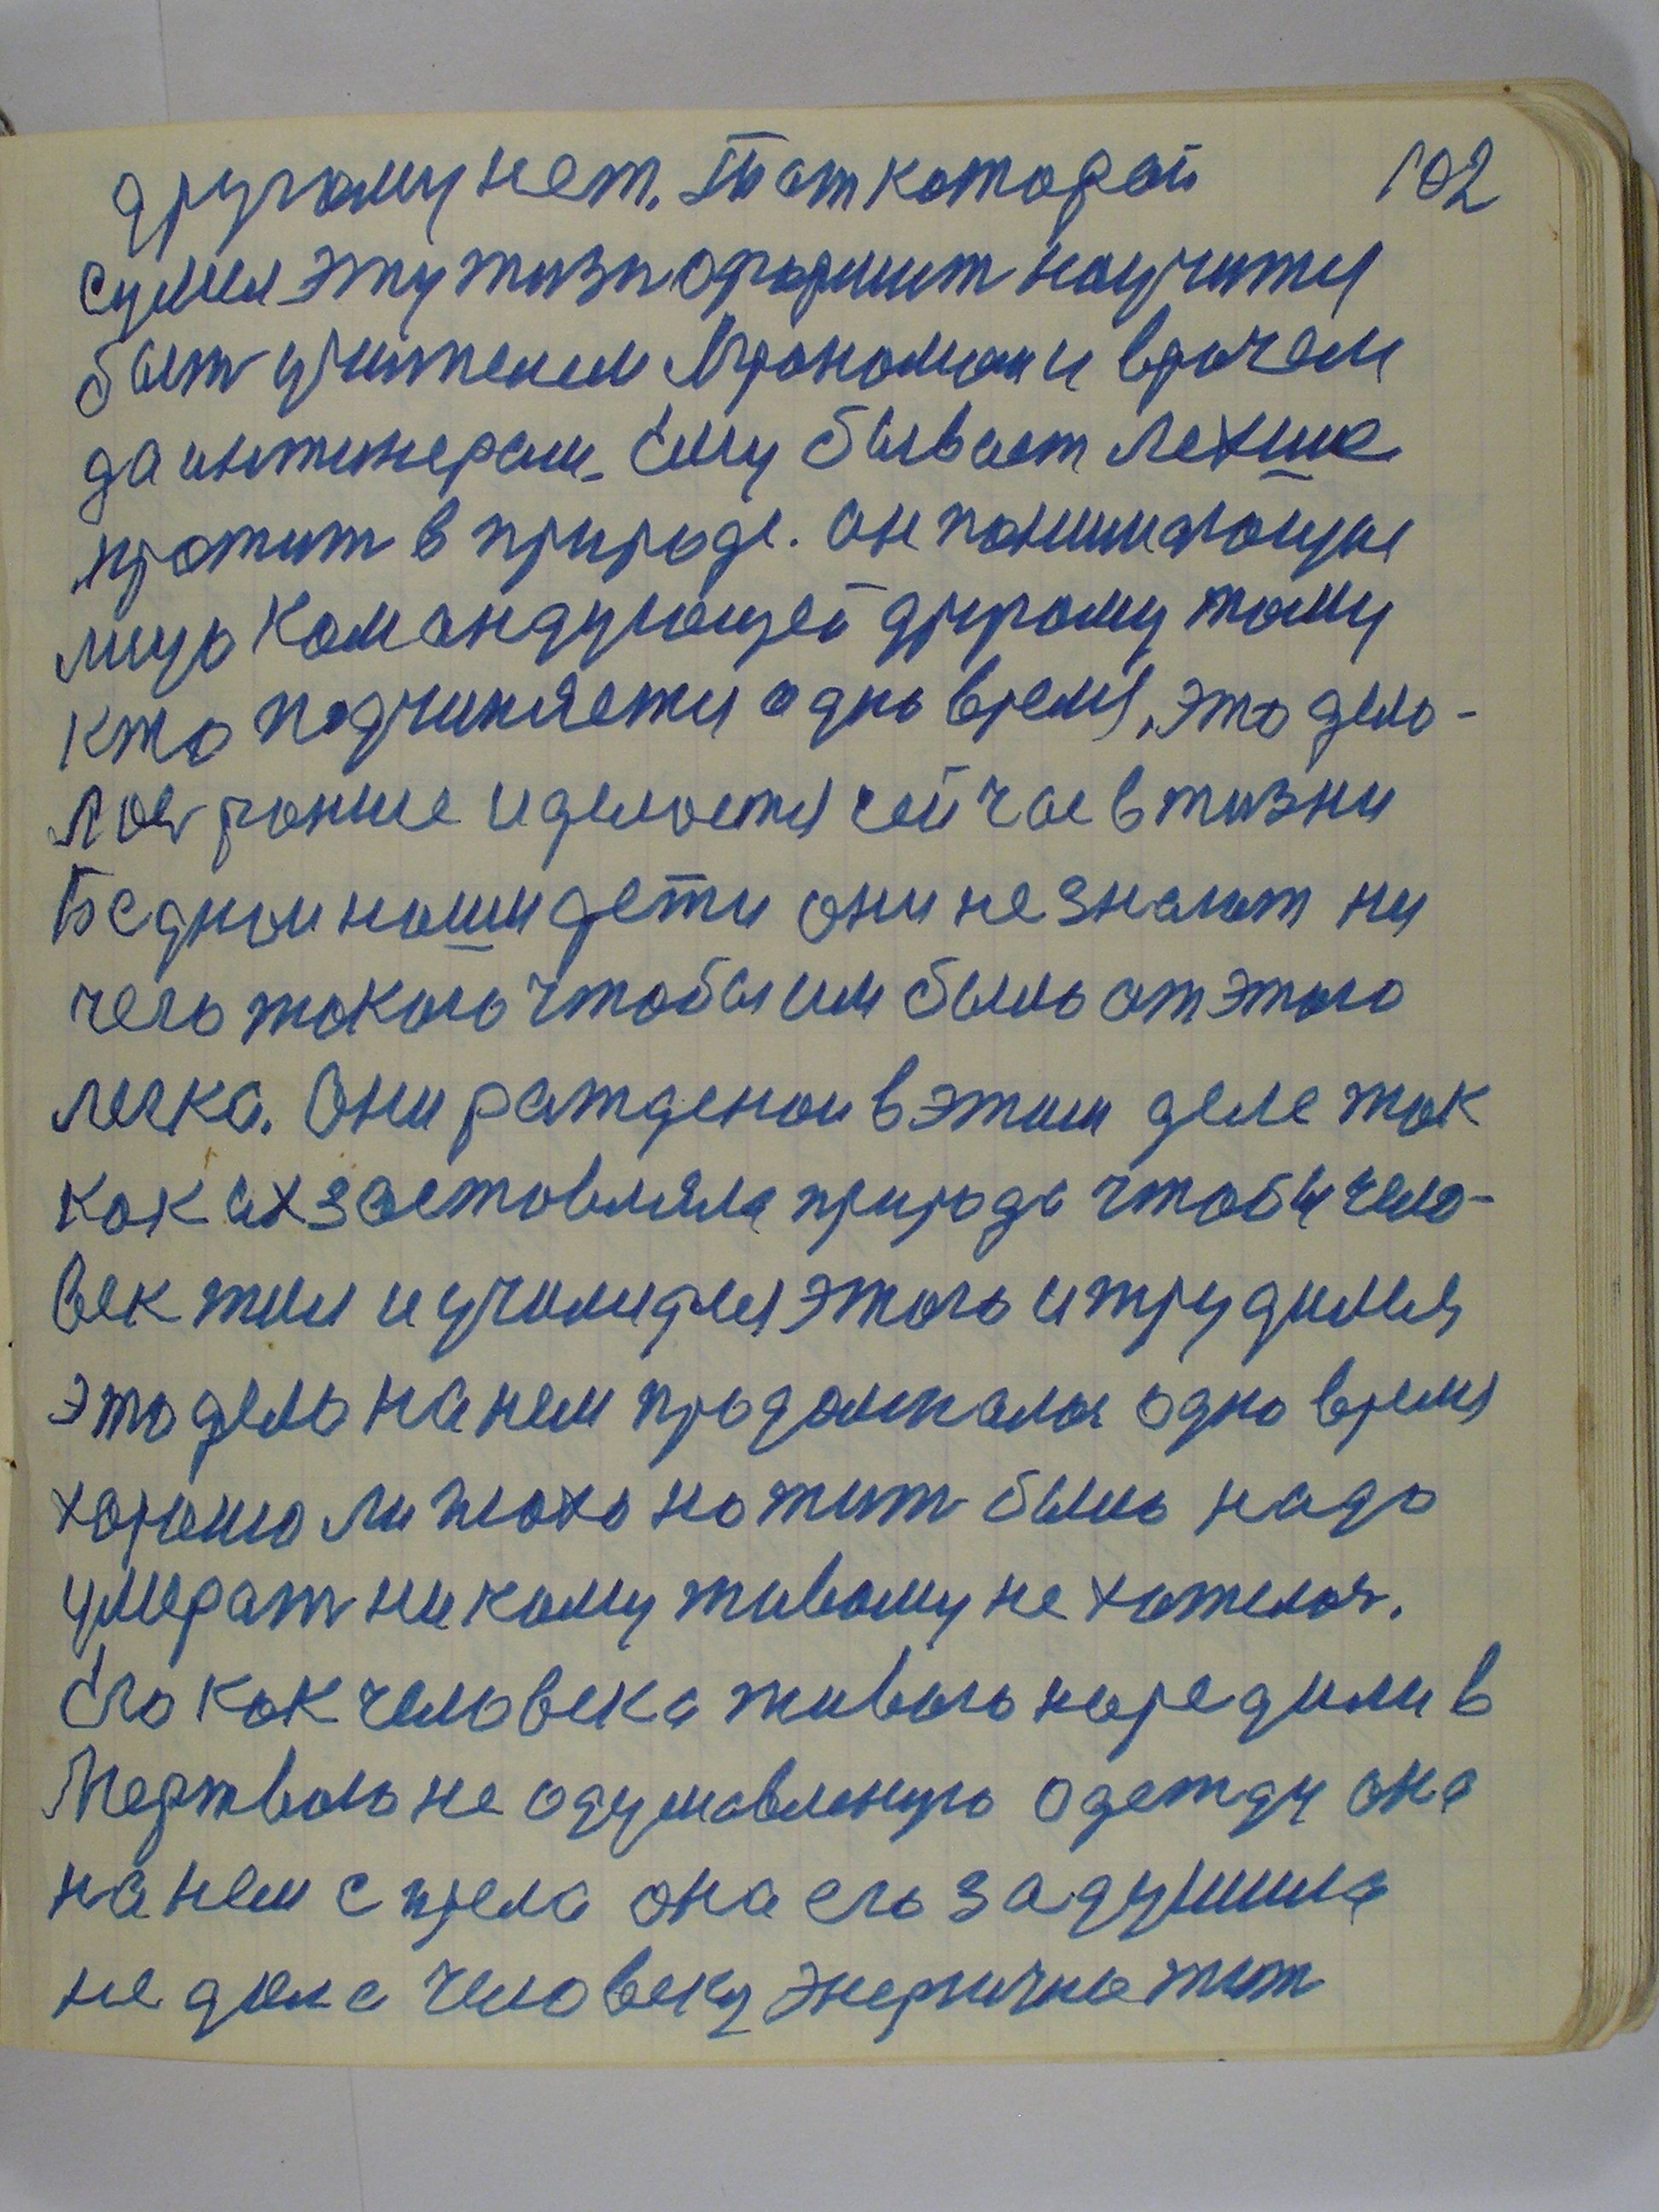 другому нет. Тот которай 102
сумел эту жизн оформит научится
быт учителем Агрономам и врачем
да интинерам. Ему бывает лехше
прожит в природе. он понимающие
лицо командующей другому тому
кто подчиняется одно время, это дела-
лос ранше и делается сейчас в жизни
Бедныи наши дети они не знают ни
чего такого чтобы им было от этого
легка. Они ражденои в этим деле так
как их заставляла природа чтобы чело-
век жил и училися этого и трудился
это дело на нем продолжалос одно время
хорошо ли плохо но жит было надо
умерат ни кому живому не хателос.
Его как человека живого наредили в
Мертваю не одушавленую одежду она
на нем с прела она его задушила
не дала человеку энергично жит